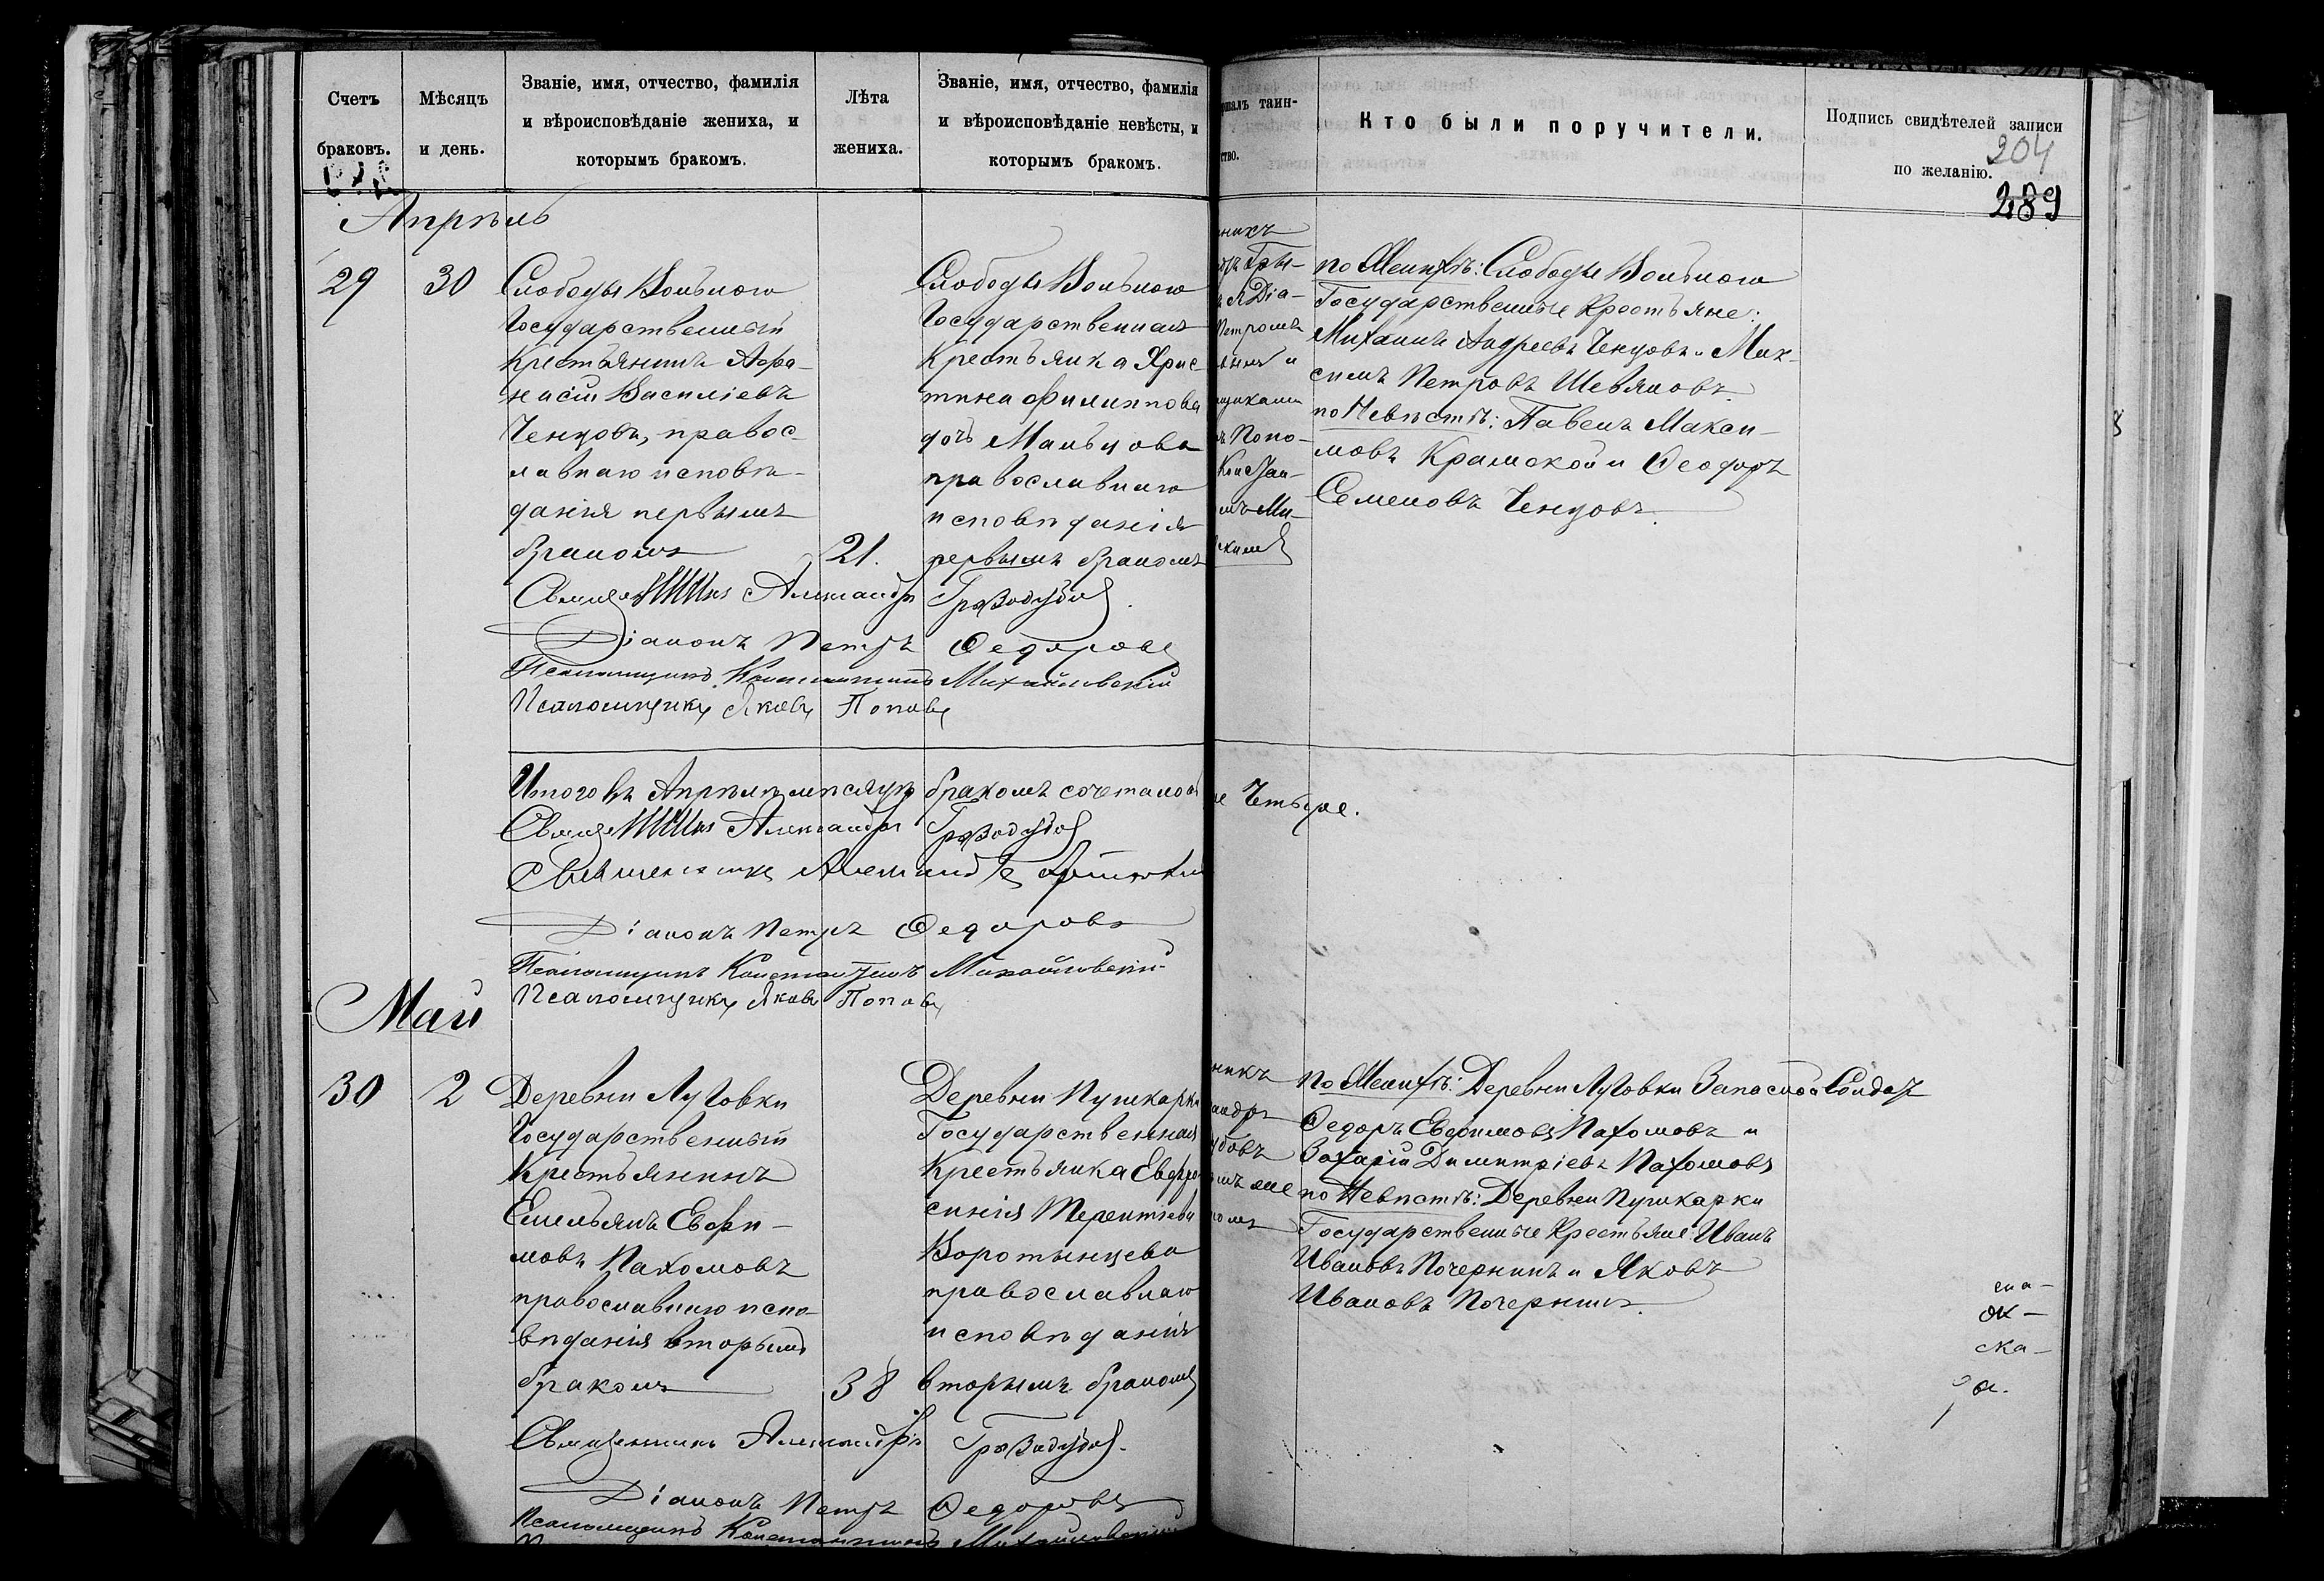 Счетъ
браковъ.
Мѣсяцъ
и день.
Званіе, имя, отчество, фамилія
и вѣроисповѣданіе жениха, и
которымъ бракомъ.
Лѣта
жениха.
Званіе, имя, отчество, фамилія
и вѣроисповѣданіе невѣсты, и
которымъ бракомъ.
Апрѣль
29
30
Слободы Вольного
Государственный
Крестьянинъ Афа-
насій Василіевъ
Ченцовъ, правос-
лавнаго исповѣ-
данія первымъ
бракомъ
21.
Слободы Вольного
Государственная
Крестьянка Хрис
тина Филиппова
дочь Мальцова
православнаго
исповѣданія
первымъ бракомъ
Священникъ Александръ Грозодубовъ
Діаконъ Петръ Федоровъ
Псаломщикъ Константинъ Михайловскій
Псаломщикъ Яковъ Поповъ
Итого въ Апрѣлѣ мѣсяцѣ бракомъ сочетано
Священникъ Александръ Грозодубовъ
Священникъ Александръ
Діаконъ Петръ Федоровъ
Псаломщикъ Константинъ Михайловскій
Псаломщикъ Яковъ Поповъ
Май
30
2
Деревни Луговки
Государственный
Крестьянинъ
Емельянъ Евфи-
мовъ Пахомовъ
православнаго испо-
вѣданія вторымъ
бракомъ
38
Деревни Пушкарки
Государственная
Крестьянка Евфро
синія Терентіева
Воротынцева
православнаго
исповѣданія
вторымъ бракомъ
Священникъ Александръ Грозодубовъ.
Діаконъ Петръ Федоровъ
Псаломщикъ Константинъ Михайловскій
таин-
ство.
Кто были поручители.
Подпись свидѣтелей записи
по желанію.
204
289
никъ
Діа-
Петромъ
и
Попо-
Ми-
по Женихѣ: Слободы Вольного
Государственные Крестьяне:
Михаилъ Андреевъ Ченцовъ и Мак-
симъ Петровъ Шевляковъ.
по Невѣстѣ: Павелъ Макси-
мовъ Крамской и Феодоръ
Семеновъ Ченцовъ.
Четыре.
никъ
по Женихѣ: Деревни Луговки Запасной Солдатъ
Федоръ Евфимовъ Пахомовъ и
Захарій Димитріевъ Пахомовъ
по Невѣстѣ: Деревни Пушкарки
Государственные Крестьяне: Иванъ
Ивановъ Почернинъ и Яковъ
Ивановъ Почернинъ.
ок-
ска-